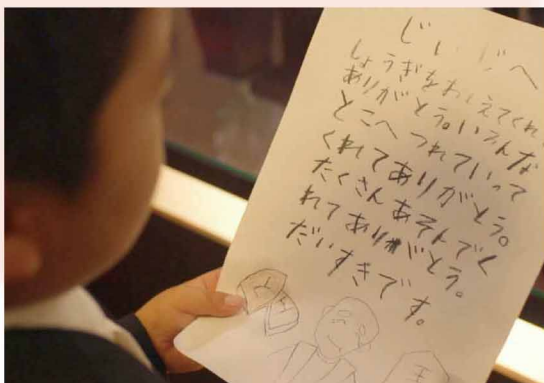 じいじへ
しょうぎをおしえてくれ
ありがとう。いろんな
とこへつれていって
くれてありがとう。
たくさんあそんでく
れてありがとう。
だいすきです。
王